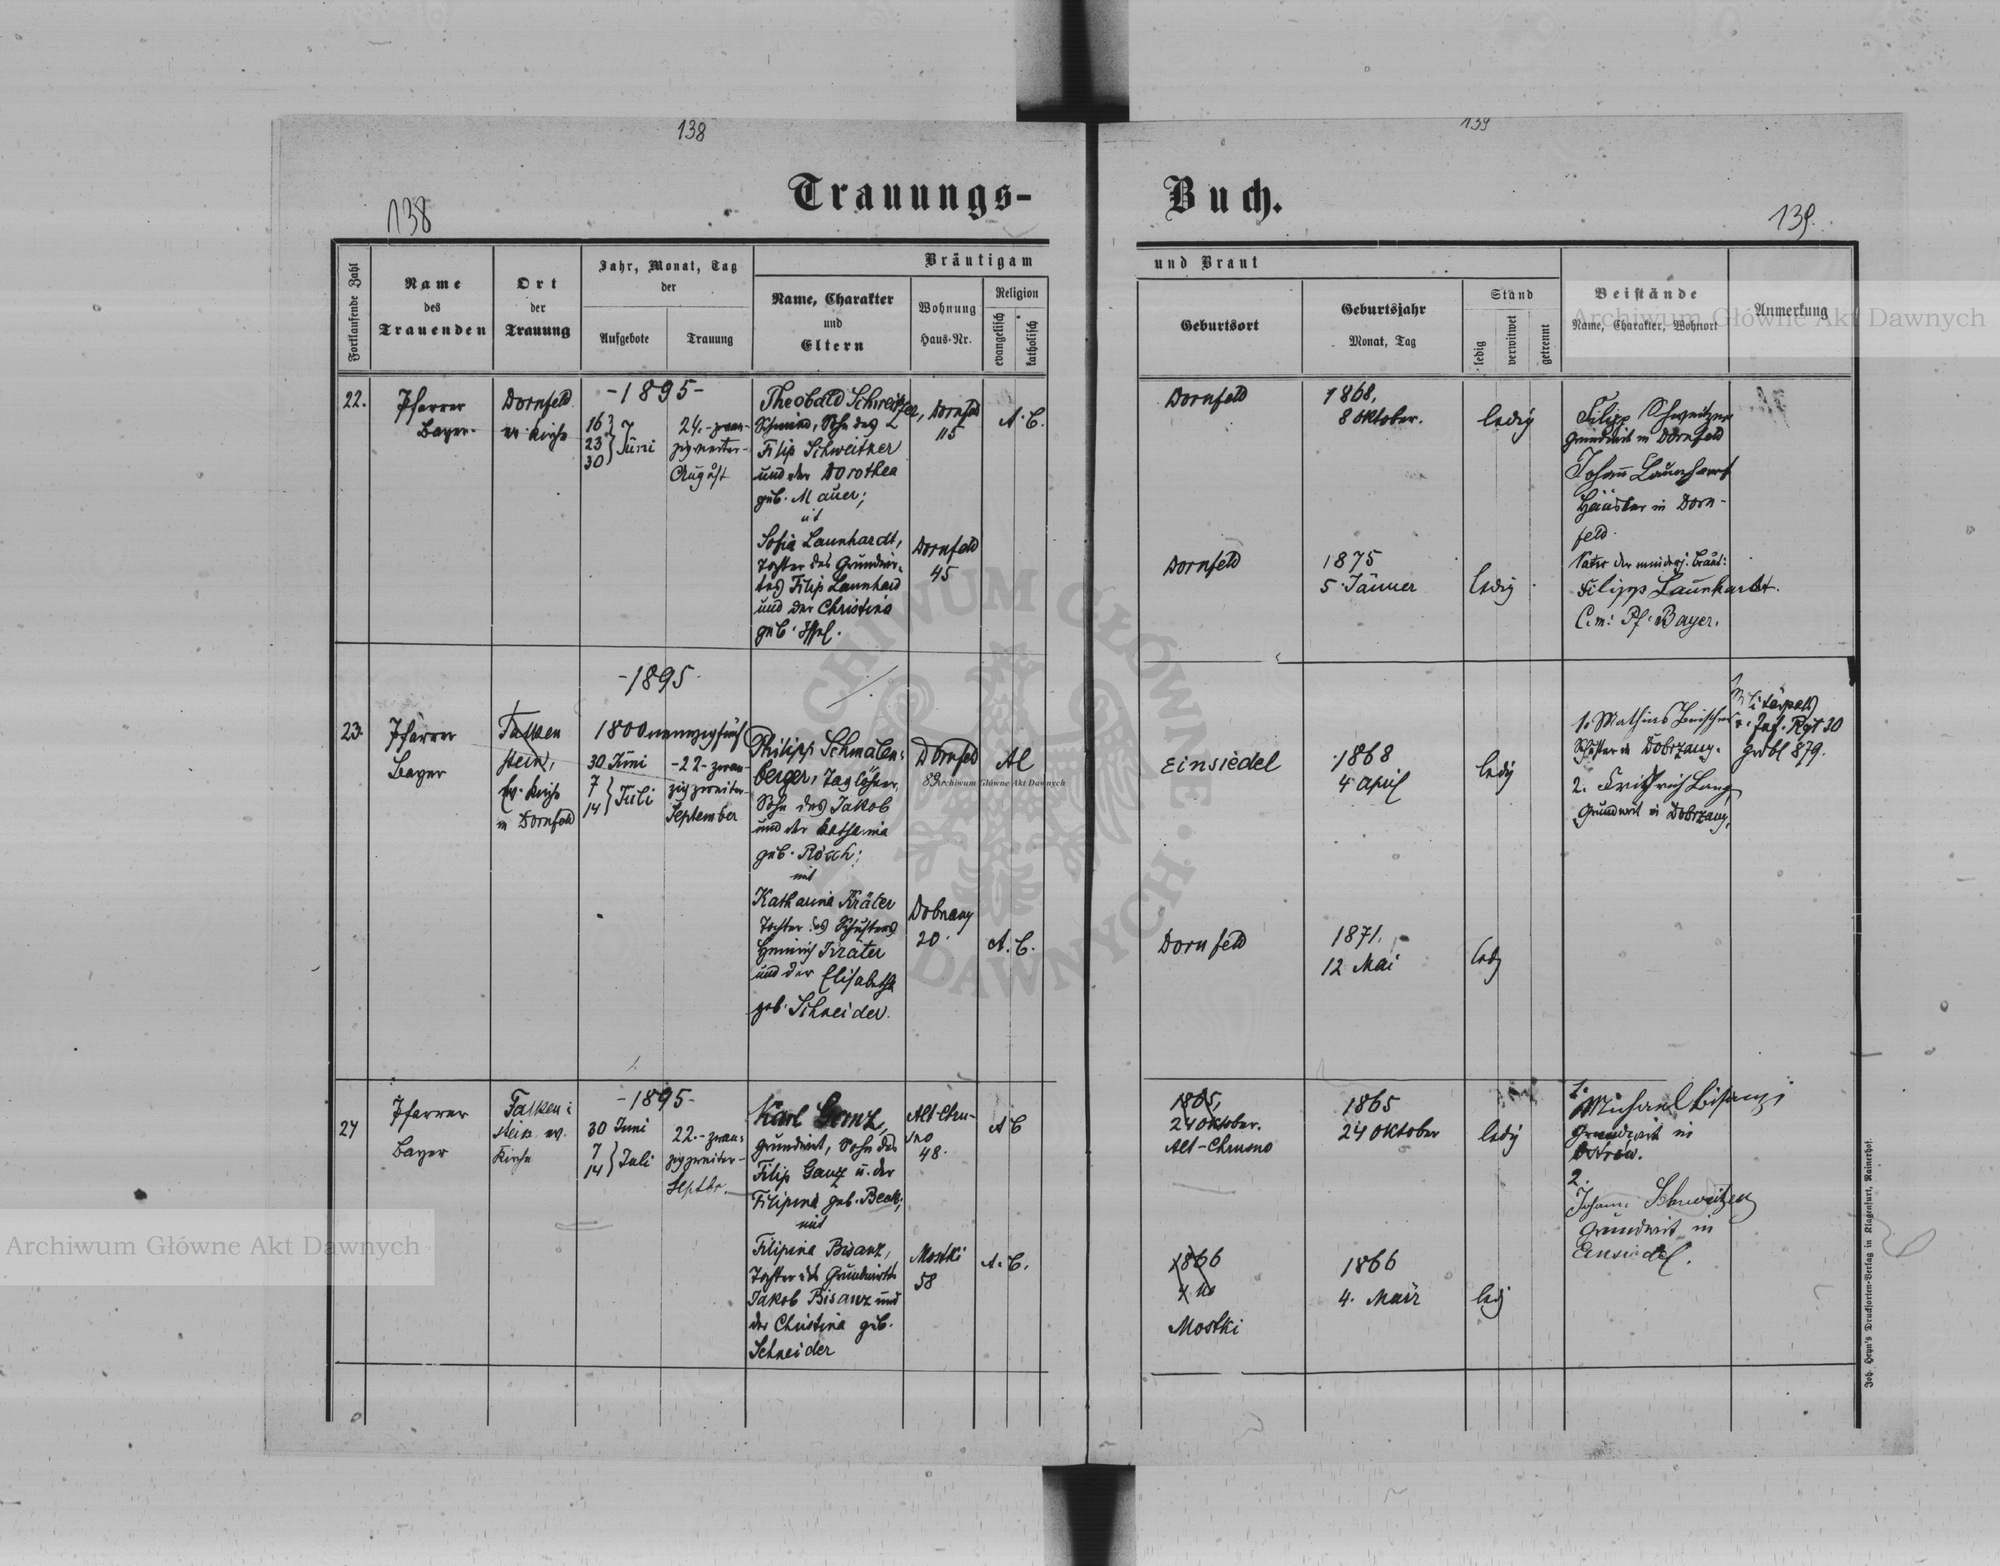 138
139
Trauungs-
Buch.
138
139.
Fortlaufende Zahl
Name
des
Trauenden
Ort
der
Trauung
Jahr, Monat, Tag
der
Aufgebote
Trauung
Bräutigam
Name, Charakter
und
Eltern
Wohnung
Haus-Nr.
Religion
evangelisch
katholisch
und Braut
Geburtsort
Geburtsjahr
Monat, Tag
Stand
ledig
verwitwet
getrennt
Beistände
Name, Charakter, Wohnort
Anmerkung
22.
Pfarrer
Bayer.
Dornfeld
ev. Kirche
-1895-
16
23
30
Juni
24.-zwan-
zigvierter-
August
Theobald Schweitzer,
Schmied, Sohn des
Filip Schweitzer
und der Dorothea
geb. Mauer;
mit
Sofia Launhardt,
Tochter des Grundwir-
tes Filip Launhard
und der Christina
geb. Issel.
Dornfeld
115
Dornfeld
45
A. C.
Dornfeld
1868,
8 Oktober.
ledig
Dornfeld
1875
5 Jänner
ledig
Filipp Schweitzer
Grundwirt in Dornfeld
Johann Launhardt
Häusler in Dorn-
feld.
Vater der minderj. Braut:
Filipp Launhardt.
C. m: Pf. Bayer.
23.
Pfarrer
Bayer
Falken
stein,
Ev. Kirche
in Dornfeld
-1895-
1800neunzigfünf
30 Juni
7
14
Juli
-22-zwan-
zigzweiter-
September
Philipp Schmalen-
berger, Taglöhner,
Sohn des Jakob
und der Katharina
geb. Rösch;
mit
Katharina Kräter
Tochter des Schusters
Heinrich Kräter
und der Elisabeth
geb. Schneider.
Dornfeld
83
Dobrzany
20.
AC
A. C.
Einsiedel
1868
4 April
ledig
Dornfeld
1871.
12 Mai
ledig
1. Mathias
Schuster in Dobrzany.
2. Friedrich Lang
Grundwirt in Dobrzany,
Inf. Rgt 30
Grdbl 879.
24
Pfarrer
Bayer
Falken-
stein ev.
Kirche
-1895-
30 Juni
7
14
Juli
22.-zwan-
zigzweiter-
Septbr.
Karl Ganz,
Grundwirt, Sohn des
Filip Ganz u. der
Filipina geb. Beck;
mit
Filipina Bisanz,
Tochter des Grundwirts
Jakob Bisanz und
der Christina geb.
Schneider
Alt-Chru-
sno
48.
Mostki
58
A C
A. C.
1865,
24 Oktober.
Alt-Chrusno
1865
24 Oktober
ledig
1866
Mostki
1866
4. März
ledig
1.
Michael Bisanz
Grundwirt in
Ostrow.
2.
Johann Schweitzer
Grundwirt in
Einsiedel.
Joh. Heyn's Drucksorten-Verlag in Klagenfurt, Rainerhof.
Archiwum Główne Akt Dawnych
Archiwum Główne Akt Dawnych
Archiwum Główne Akt Dawnych
ARCHIWUM GŁÓWNE AKT DAWNYCH